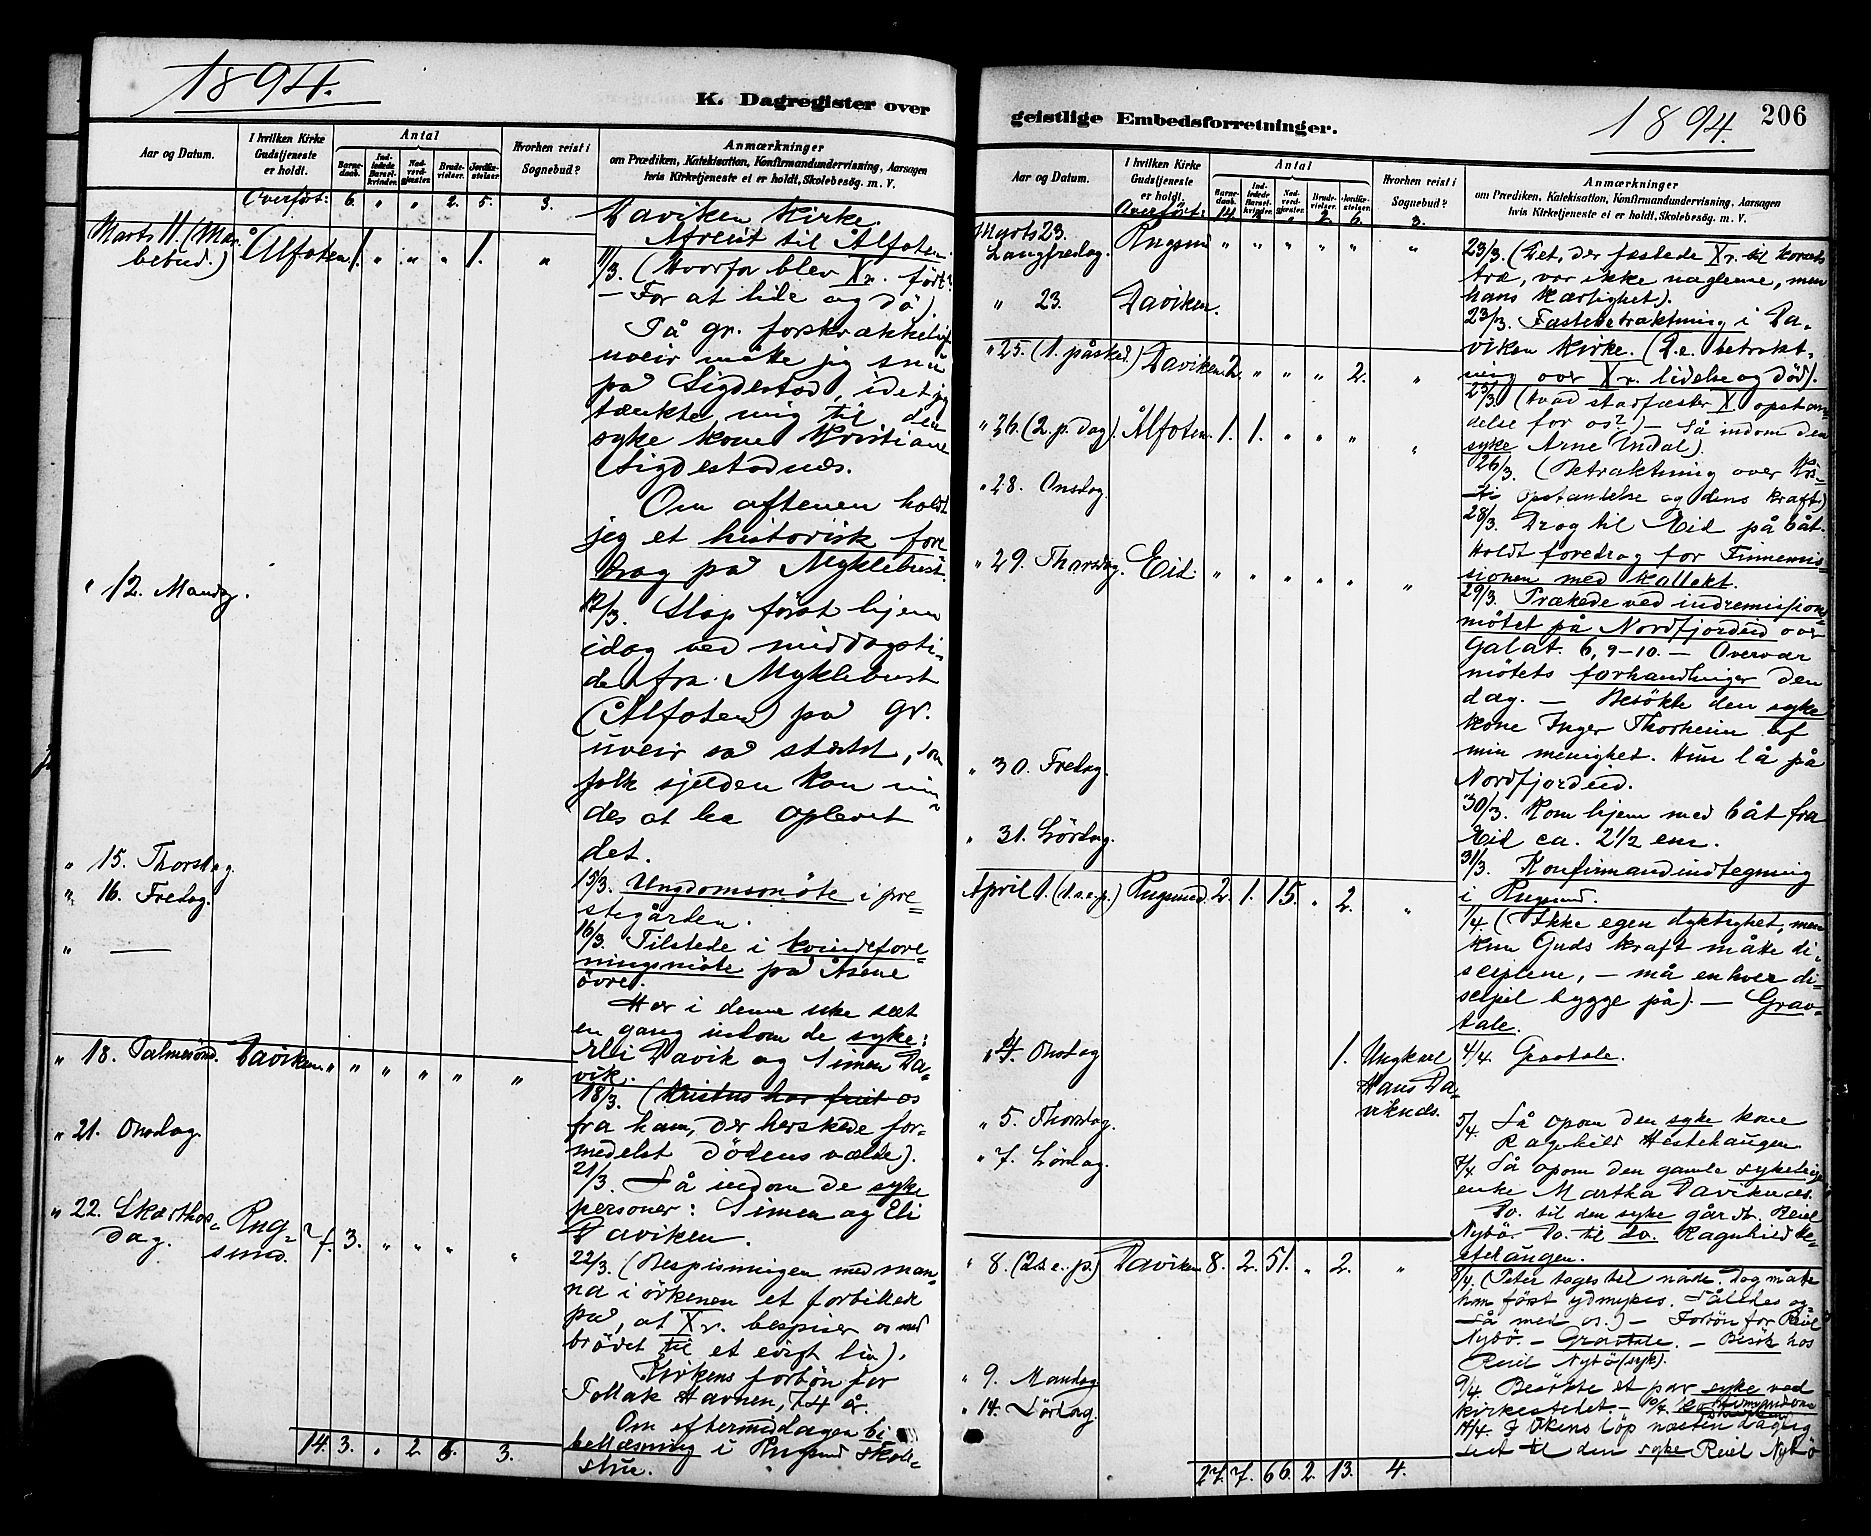 1894.
K. Dagregister over
Aar og Datum.
I hvilken Kirke Gudstjeneste er holdt.
Antal
Barnedaab.
Indledede Barselkvinder.
Nadverdgjester.
Brudevielser.
Jordfæstelser.
Hvorhen reist i Sognebud?
Anmærkninger
om Prædiken, Katekisation, Konfirmandundervisning, Aarsagen
hvis Kirketjeneste ei er holdt, Skolebesög. m. V.
Overført: 6. " " 2. 5. 3.
Daviken Kirke.
Afreist til Ålfoten.
Marts 11. (Mar. bebud.) Ålfoten. 1. " " " 1. "
11/3. (Hvorfor blev Xr. født?
– For at lide og dö).
På gr. forskrækkelig
uveir måtte jeg snu
på Sigdestad, idet jeg
tænkte mig til den
syke kone Kristiane
Sigdestadnæs.
Om aftenen holdt
jeg et historisk fore
drag på Myklebust.
" 12. Mandag.
12/3. Slap först hjem
idag ved middagsti-
den fra Myklebust
(Ålfoten) på gr.
uveir så stærkt, som
folk sjelden kan min-
des at ha oplevet
det.
" 15. Thorsdag
15/3. Ungdomsmöte i pre-
stegården.
" 16. Fredag.
16/3. Tilstede i kvindefore-
ningsmöte på Åsene
övre.
" —
Har i denne uke set
en gang indom de syke:
Eli Davik og Simen Da-
vik.
" 18. Palmesönd. Daviken " " " " " "
18/3. (Kristus har friet os
fra ham, der herskede for-
medelst dödens vælde).
" 21. Onsdag.
21/3. Så indom de syke
personer: Simen og Eli
Daviken.
" 22. Skærthors-
dag. Rug-
sund. 7. 3. " " " "
22/3. (Bespisningen med man-
na i örkenen et forbillede
på, at Xr. bespiser os med
brödet til et evigt liv).
Kirkens forbön for
Tollak Havnen, 74 år.
Om eftermiddagen bi-
bellæsning i Rugsund skole-
stue.
14. 3. " 2. 6. 3.
geistlige Embedsforretninger.
1894.
206
Aar og Datum.
I hvilken Kirke Gudstjeneste er holdt.
Antal
Barnedaab.
Indledede Barselkvinder.
Nadverdgjester.
Brudevielser.
Jordfæstelser.
Hvorhen reist i Sognebud?
Anmærkninger
om Prædiken, Katekisation, Konfirmandundervisning, Aarsagen
hvis Kirketjeneste ei er holdt, Skolebesög. m. V.
Overført: 14. 3. " 2. 6. 3.
Marts 23.
Langfredag. Rugsund " " " " " "
23/3. (Det, der fæstede Xr. til korsets
træ, var ikke naglerne, men
hans kærlighet).
" 23. Daviken.
23/3. Fastebetraktning i Da-
viken kirke. (D.e. betrakt-
ning over Xr. lidelse og död).
" 25. (1. påsked.) Daviken 2. " " " 2. "
25/3. (Hvad stadfæster X. opstan-
delse for os?) – Så indom den
syke Arne Indal).
" 26. (2. p. dag). Ålfoten. 1. 1. " " " "
26/3. (Betraktning over Kri-
sti opstandelse og dens kraft)
" 28. Onsdag.
28/3. Drog til Eid på båt.
Holdt foredrag for Finnemis-
sionen med kollekt.
" 29. Thorsdag. Eid. " " " " " "
29/3. Prækede ved indremissions-
mötet på Nordfjordeid over
Galat. 6, 9–10. – Overvar
mötets forhandlinger den
dag. – Besökte den syke
kone Inger Thorheim af
min menighet. Hun lå på
Nordfjordeid.
" 30. Fredag.
30/3. Kom hjem med båt fra
Eid ca. 2 1/2 em.
" 31. Lördag.
31/3. Konfirmandindtegning
i Rugsund.
April 1. (1. s. e. p.) Rugsund. 2. 1. 15. " 2. "
1/4. (Ikke egen dyktighet, men
kun Guds kraft måtte di-
sciplene, – må enhver di-
scipel bygge på). – Grav-
tale.
" 4. Onsdag 1. Ungkarl
Hans Da-
viknæs.
4/4. Gravtale.
" 5. Thorsdag.
5/4. Så opom den syke kone
Ragnhild Hestehaugen
" 7. Lördag.
7/4. Så opom den gamle sykelige
enke Martha Daviknæs.
Do. til den syke gårdm. Reiel
Nybö. Do. til do. Ragnhild He-
stehaugen.
" 8. (2. s. e. p.) Daviken 8. 2. 51. " 2. "
8/4. (Peter tages til nåde. Dog måtte
han först ydmykes. Således og-
så med os.) – Forbön for Reiel
Nybö. – Gravtale. – Besök hos
Reiel Nybö (syk).
" 9. Mandag
9/4. Besökte et par syke ved
kirkestedet. – 10/4.
" 14. Lördag.
14/4. I Ukens löp næsten daglig
set til den syke Reiel Nybö
27. 7. 66. 2. 13. 4.